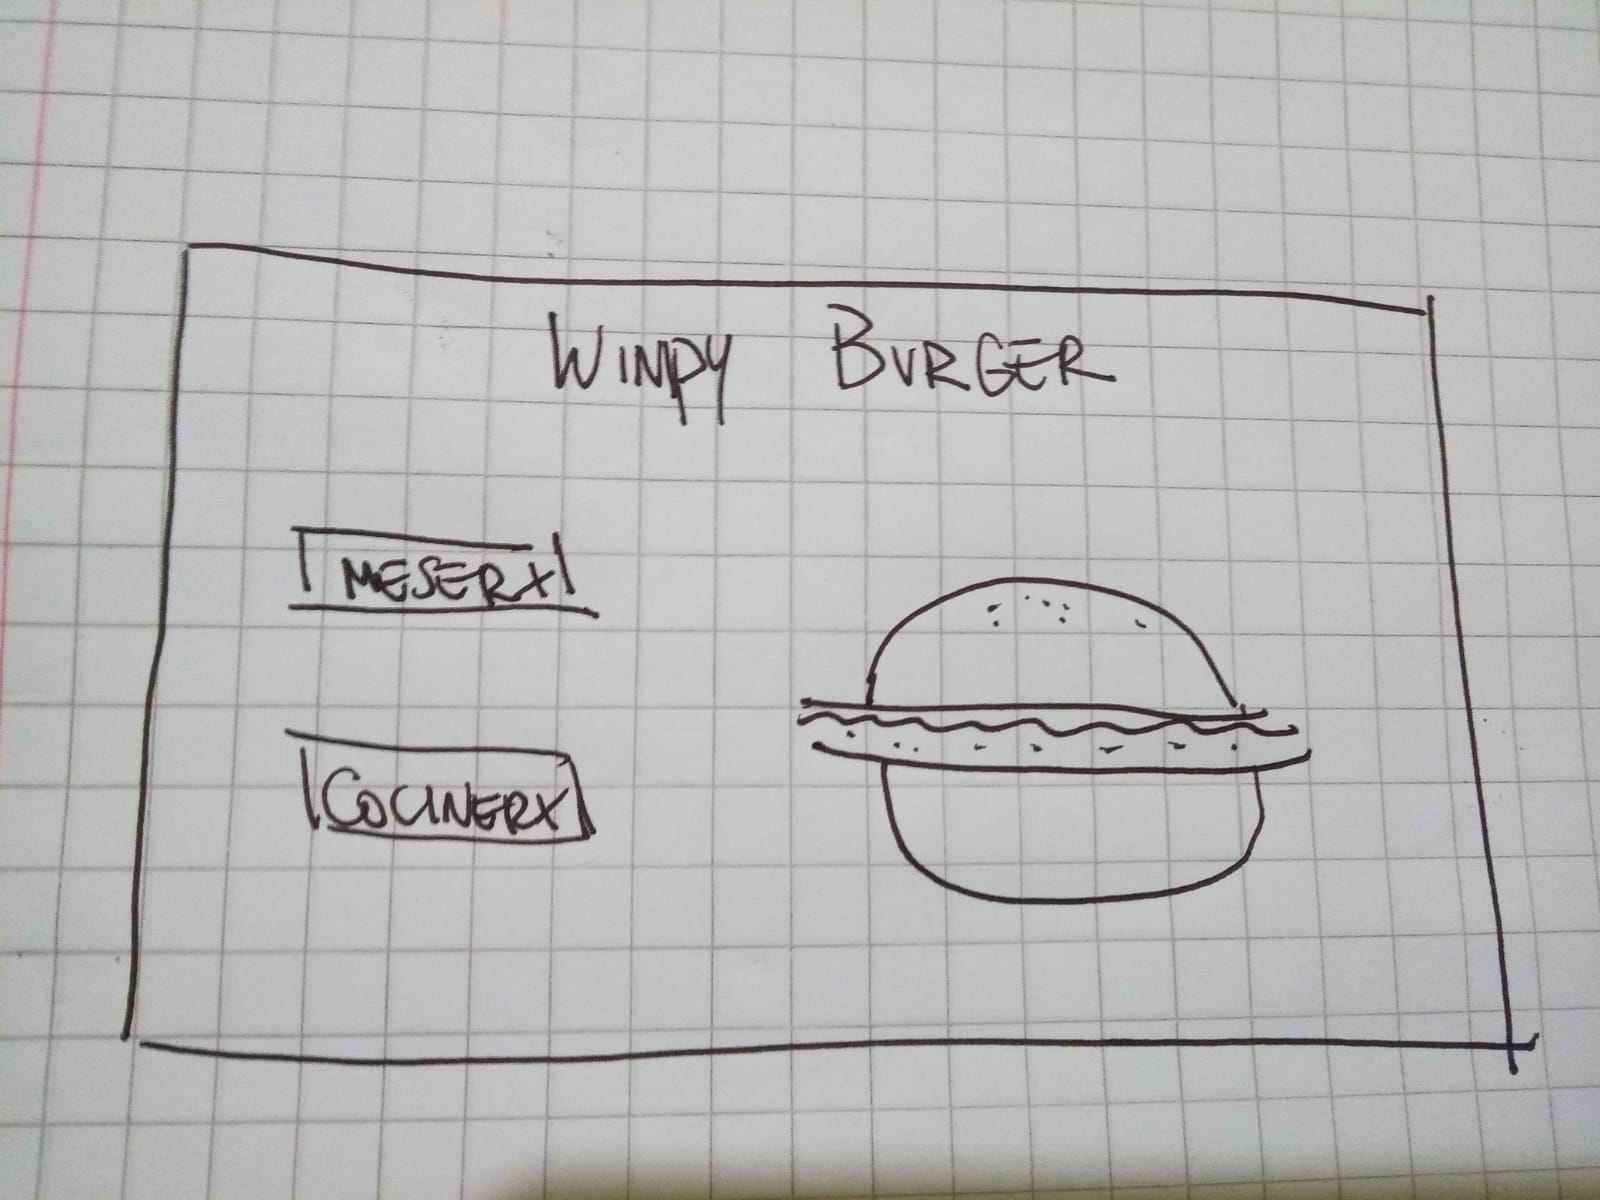 WIMPY BURGER
MESERX
COCINERX